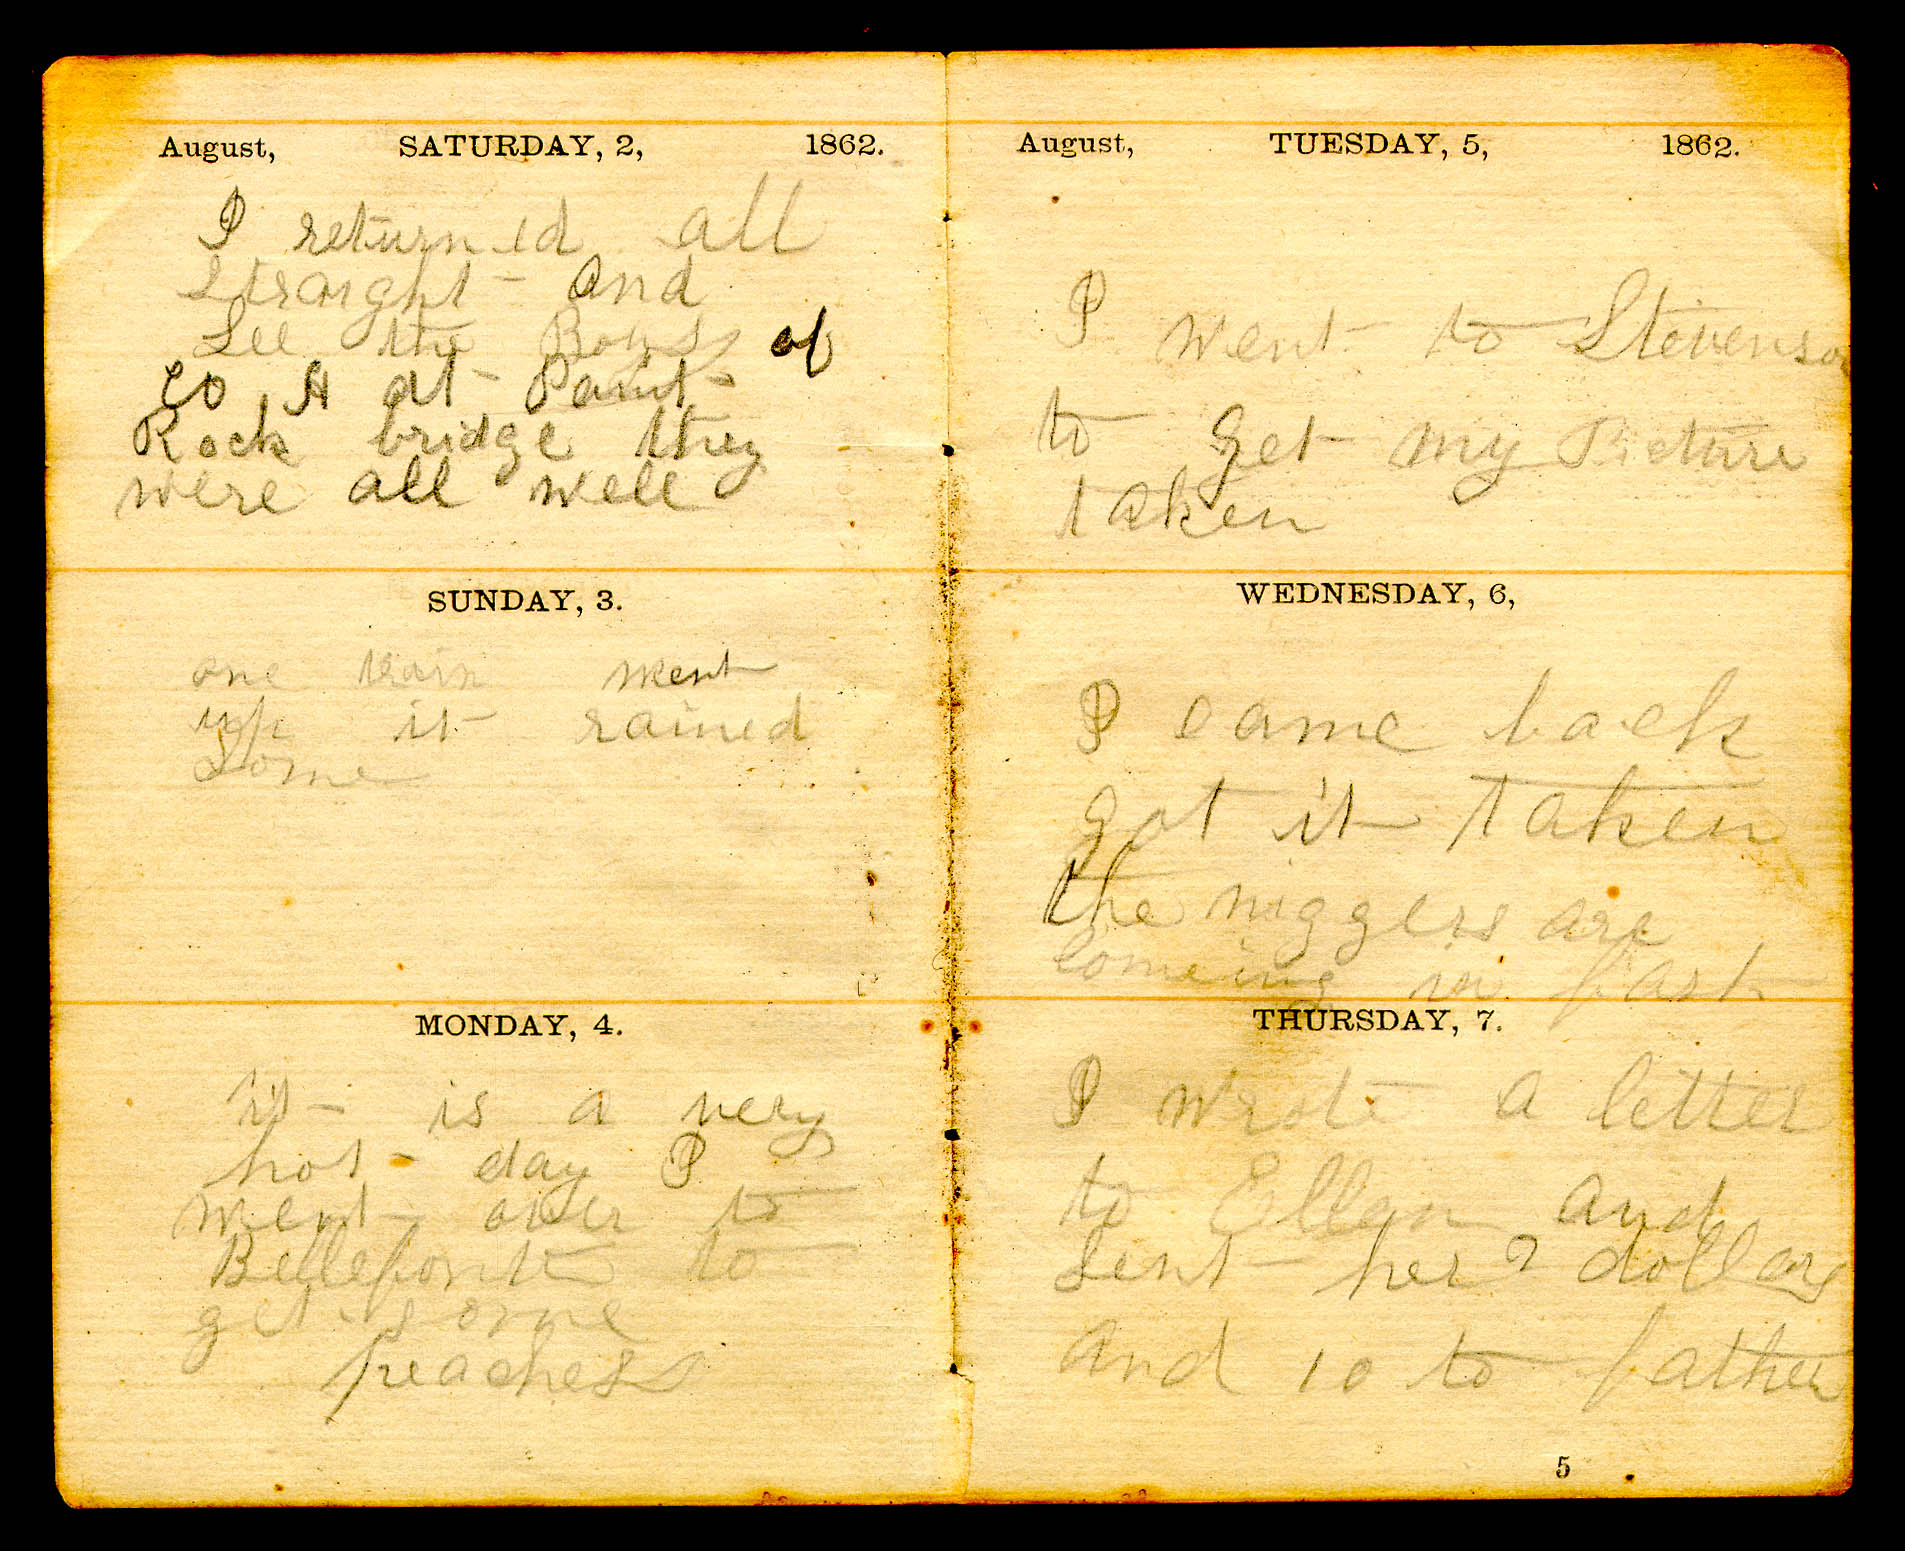 August, SATURDAY, 2, 1862.
I returned all
straight and
See the Boys of
CO H at Paint
Rock bridge they
were all well
SUNDAY, 3.
one train went
up it rained
Some
MONDAY, 4.
it is a very
hot day I
went over to
Bellefonte to
get some
peaches
August, TUESDAY, 5, 1862.
I went to Stevenson
to get my Picture
taken
WEDNESDAY, 6,
I came back
got it taken
the niggers are
Comeing in fast
THURSDAY, 7.
I wrote a letter
to Ellen and
Sent her 2 dollars
and 10 to father
5